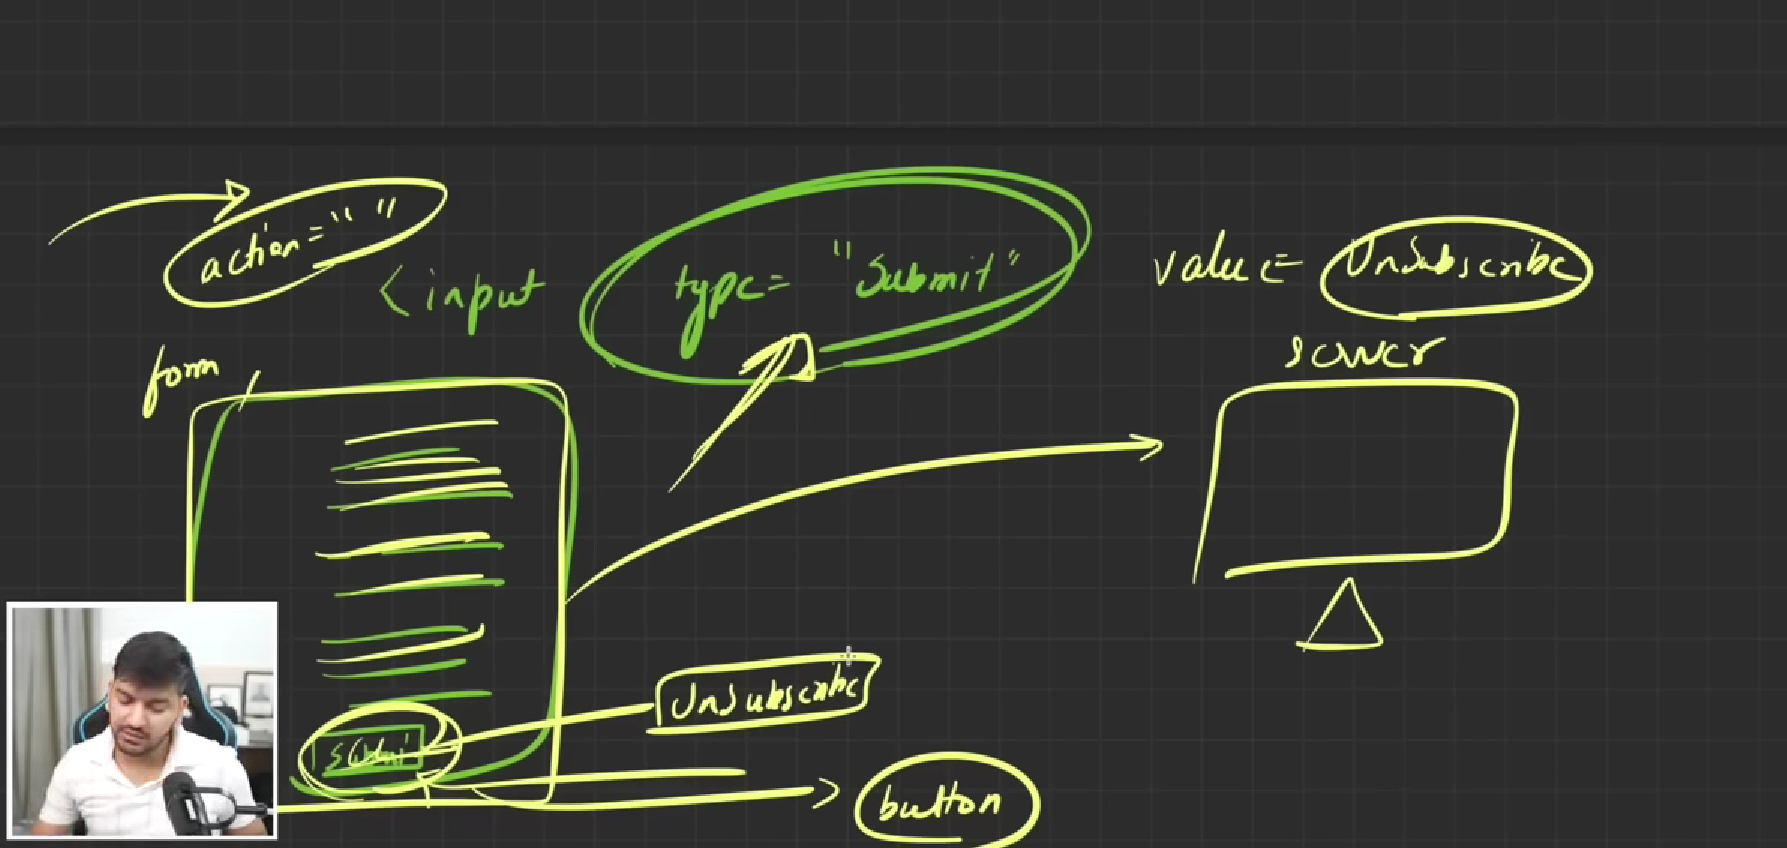 action=" "
<input type="Submit" value= UnSubscribe
form
server
UnSubscribe
Submit
button